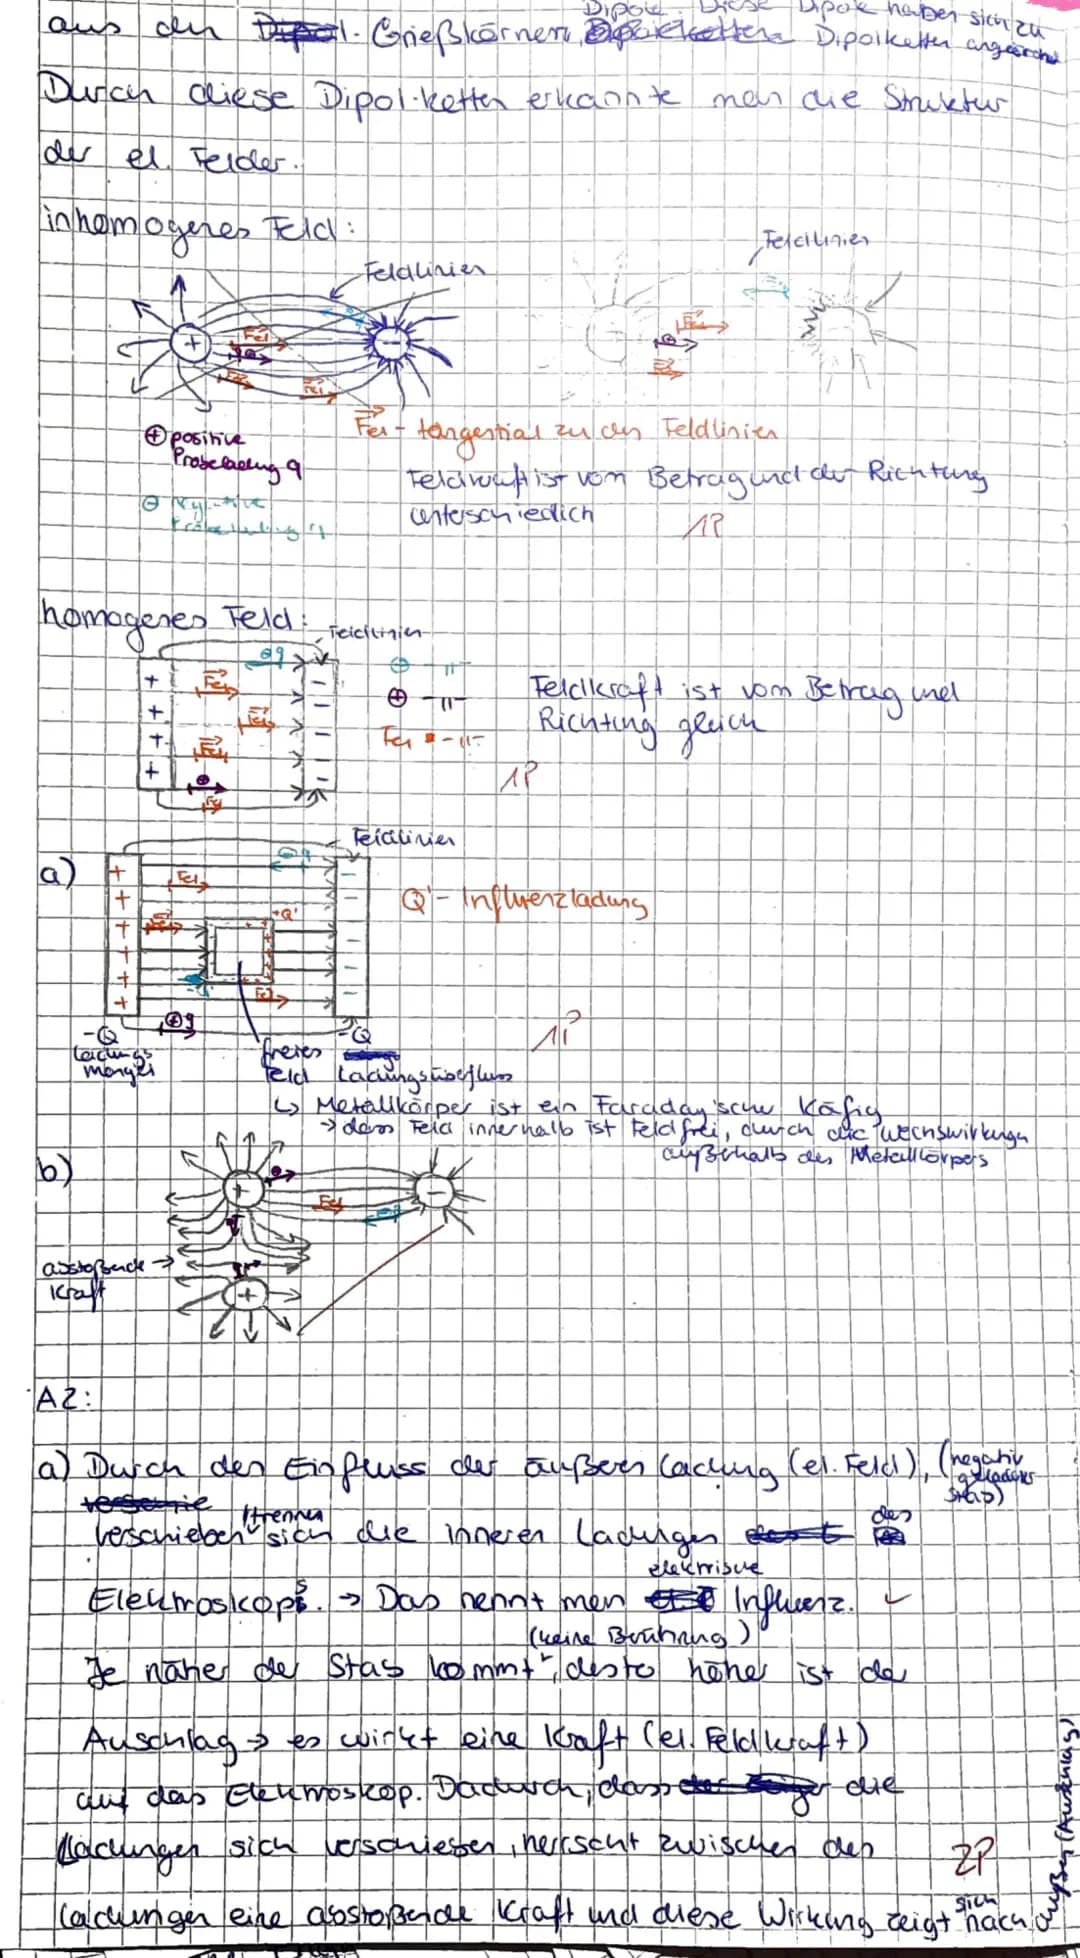 Dipole. Diese Dipole haben sich zu
aus den Grießkörnern Dipolketten angeordnet
Durch diese Dipol-ketten erkannte man die Struktur
der el. Felder.
inhomogenes Feld:
Feldlinien
Feldlinien
+
Fel
Fel
Fel
Fel
−
⊕ positive
Probeladung q
⊖ Negative
Probeladung q
Fel - tangential zu den Feldlinien
Feldkraft ist vom Betrag und der Richtung
unterschiedlich
1P
homogenes Feld:
Feldlinien
⊖q
+ + + +
Fel
Fel
Fel
Fel
− − − − −
⊖ -"-
⊕ -"-
Fel -"-
Feldkraft ist vom Betrag und
Richting gleich
1P
a)
Feldlinien
⊖q
+ + + + + +
Fel
Fel
+Q'
Fel
− − − − − −
Q' - Influenzladung
⊕q
-Q
-Q
Ladungs
mangel
freies
Feld
Ladungsüberfluss
1P
↳ Metallkörper ist ein Faraday'scher Käfig
→ dass Feld innerhalb ist Feldfrei, durch die Wechswirkungen
außerhalb des Metallkörpers
b)
+
Fel
−
abstoßende →
Kraft
+
A2:
a) Durch den Einfluss der äußeren Ladung (el. Feld), (negativ
geladener
Stab)
verschieben /trennen sich die inneren Ladungen des
Elektroskops. → Das nennt man elektrische Influenz. ✓
(keine Berührung)
Je näher der Stab kommt, desto höher ist der
Auschlag → es wirkt eine Kraft (el. Feldkraft)
auf das Elektroskop. Dadurch, dass die
Ladungen sich verschieben, herrscht zwischen den
2P
Ladungen eine abstoßende Kraft und diese Wirkung zeigt sich nach außen (Ausschlag)